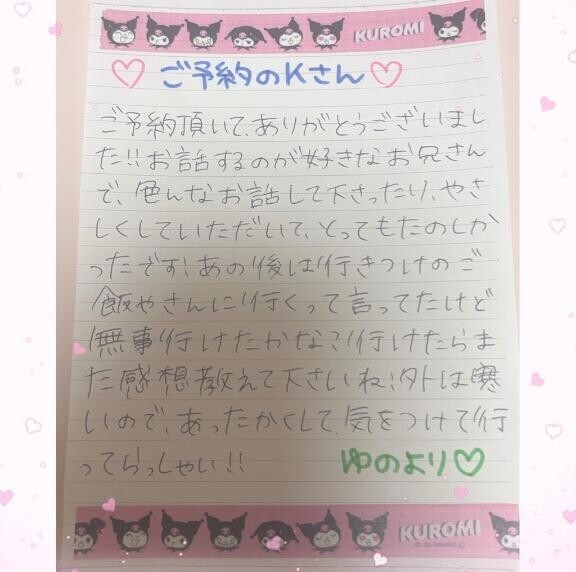 KUROMI
♡ご予約のKさん♡
ご予約頂いて、ありがとうございまし
た!!お話するのが好きなお兄さん
で、色んなお話して下さったり、やさ
しくしていただいて、とってもたのしか
ったです!あの後は行きつけのご
飯やさんに行くって言ってたけど
無事行けたかな?行けたらま
た感想教えて下さいね!外は寒
いので、あったかくして、気をつけて行
ってらっしゃい!!
ゆのより♡
KUROMI